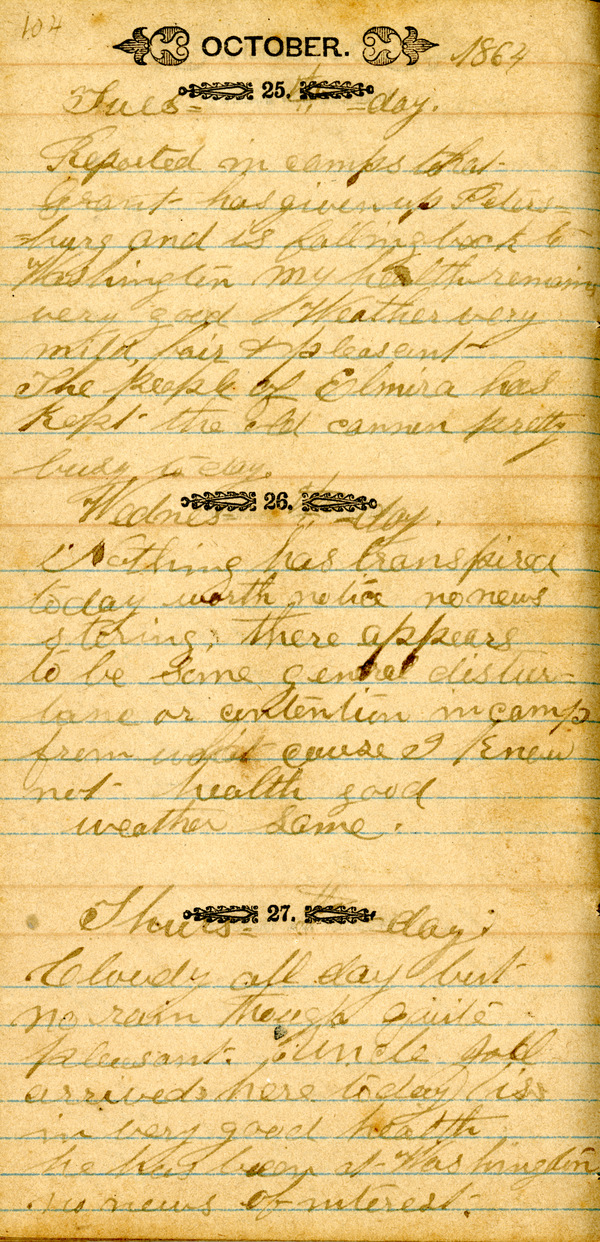 104
OCTOBER. 1864
25.
Tues= =day.
Reported in camps that
Grant has given up Peters=
=burg and is falling back to
Washington my health remains
very good Weather very
mild, fair & pleasant
The people of Elmira has
Kept the old cannon pretty
busy to day.
26.
Wednes= =day.
Nothing has transpired
today worth notice no news
stering, there appears
to be some general distur-
bane or contention in camp
from what cause I Know
not health good
weather same.
27.
Thurs= =day.
Cloudy all day but
no rain though quite
pleasant. Uncle
arrived here today is
in very good health
he has been at Washington
no news of interest.